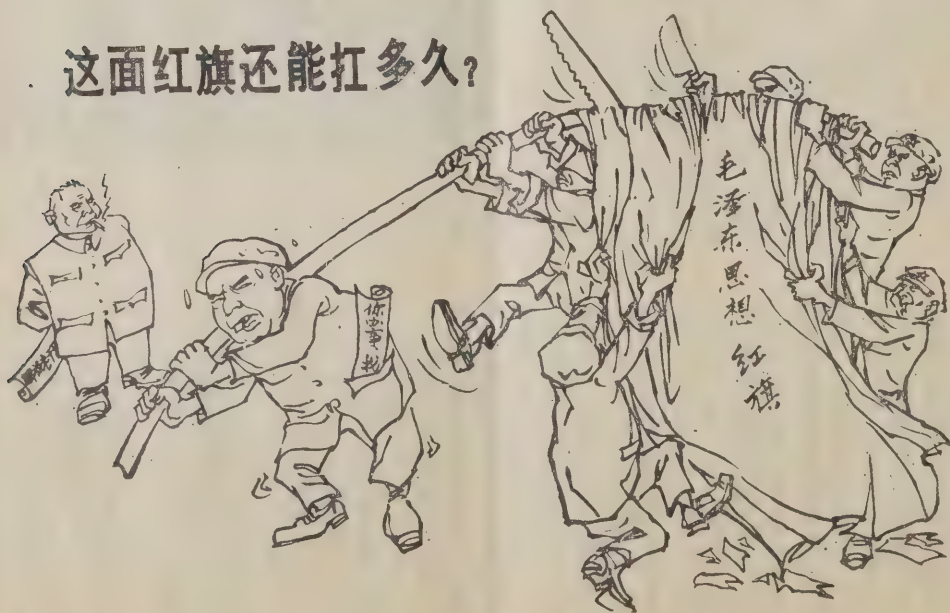 这面红旗还能扛多久?
你办事 我
毛泽东思想 红旗